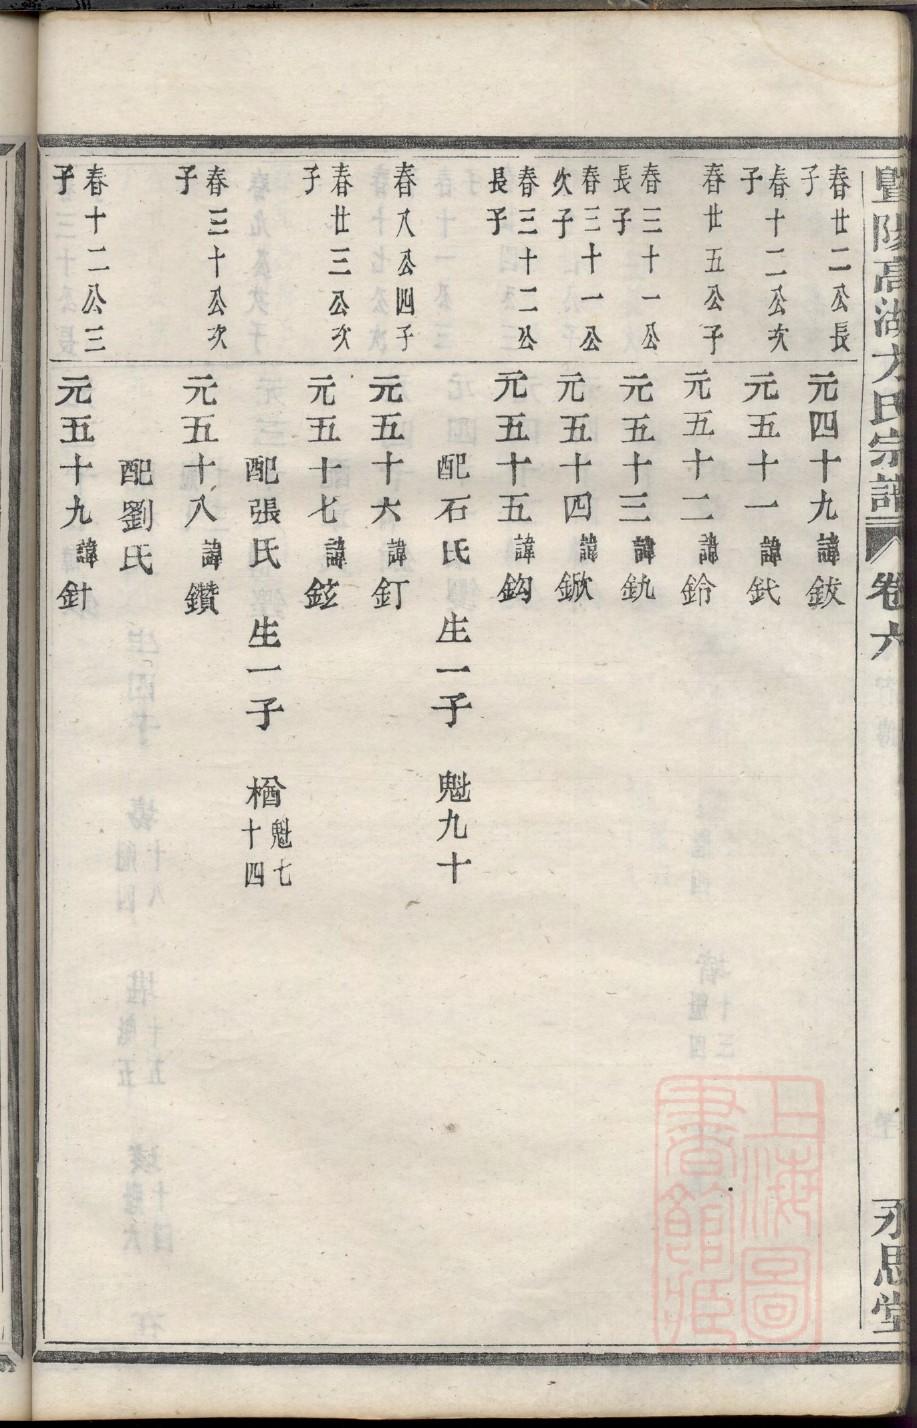 暨陽高湖方氏宗譜 卷六 永思堂
春廿二公長子 元四十九 諱鈸
春十二公次子 元五十一 諱釴
春廿五公子 元五十二 諱鈴
春三十一公長子 元五十三 諱釚
春三十一公次子 元五十四 諱鍁
春三十二公長子 元五十五 諱鈎
配石氏 生一子 魁九十
春八公四子 元五十六 諱釘
春廿三公次子 元五十七 諱鉉
配張氏 生一子 楢 魁七十四
春三十公次子 元五十八 諱鑽
配劉氏
春十二公三子 元五十九 諱針
上海圖書館藏